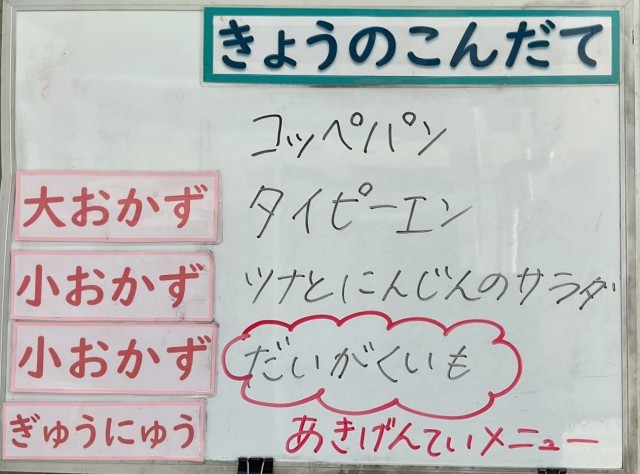 きょうのこんだて
コッペパン
大おかず タイピーエン
小おかず ツナとにんじんのサラダ
小おかず だいがくいも
ぎゅうにゅう あきげんていメニュー